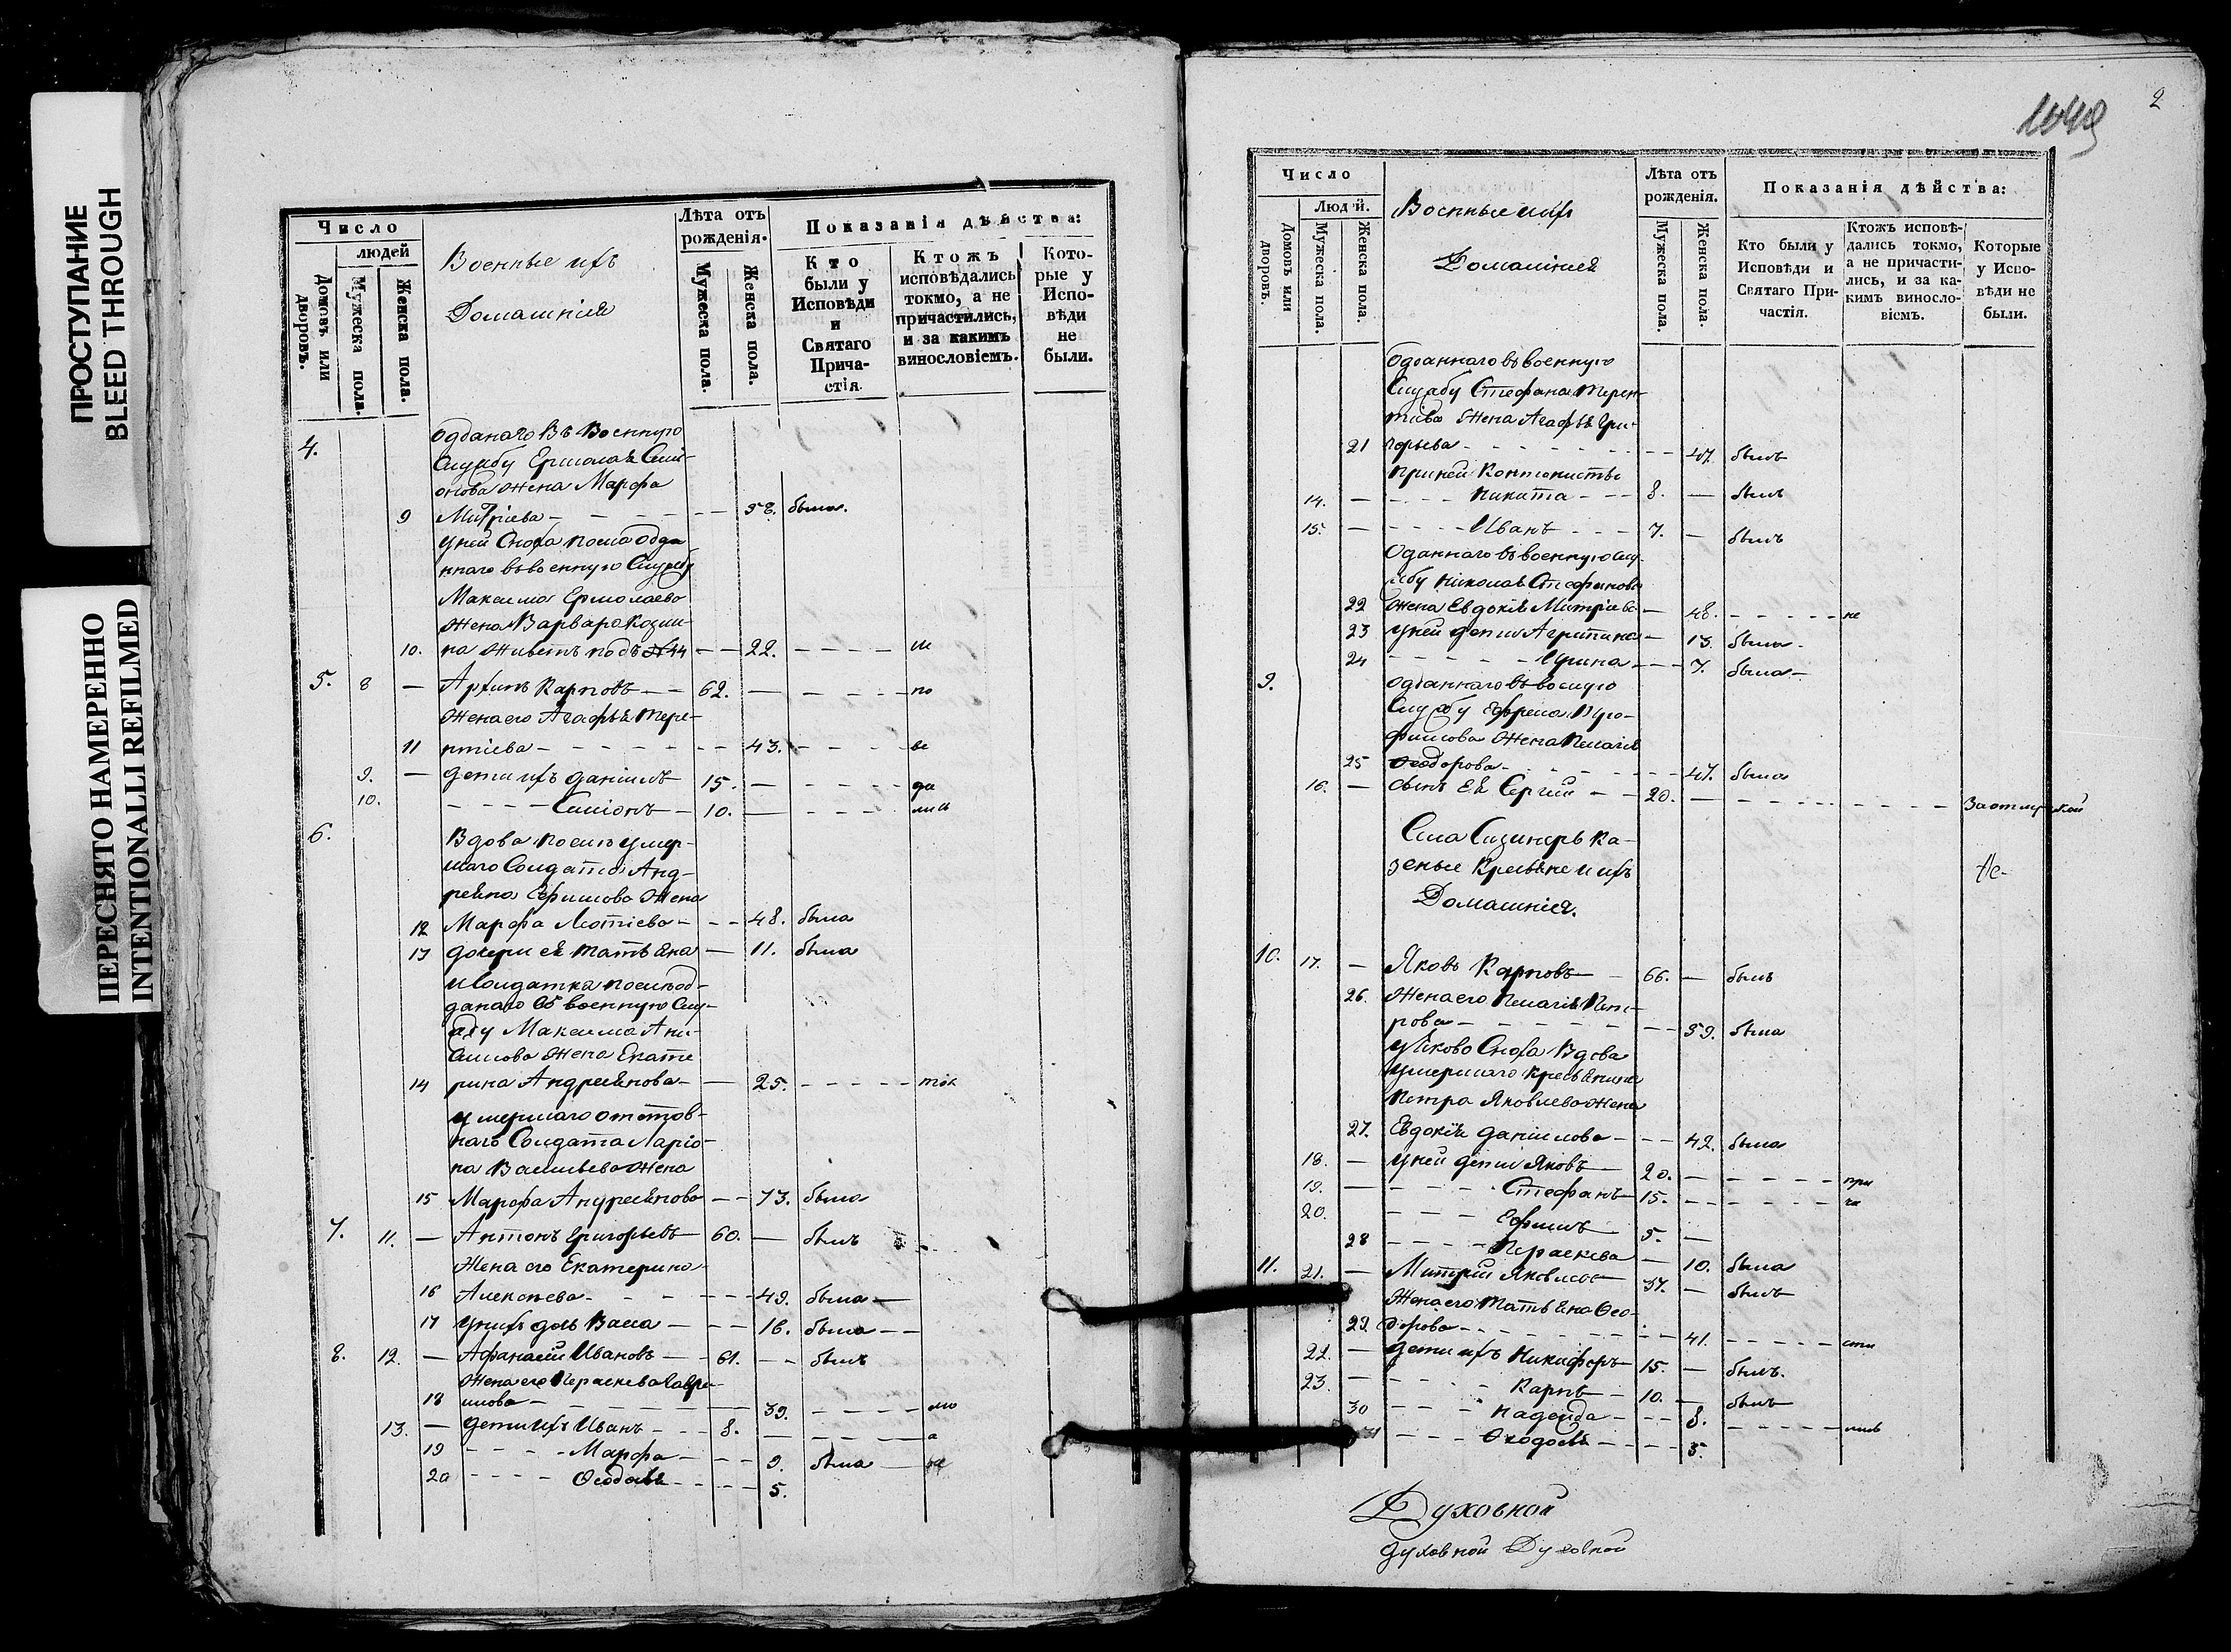 ПРОСТУПАНИЕ
BLEED THROUGH
ПЕРЕСНЯТО НАМЕРЕННО
INTENTIONALLI REFILMED
Число
людей
Домовъ или дворовъ.
Мужеска пола.
Женска пола.
Военные ихъ
Домашнія
Лѣта отъ
рожденія.
Мужеска пола.
Женска пола.
Показанія дѣйства:
Кто
были у
Исповѣди
и
Святаго
Прича-
стія
Ктожъ
исповѣдались
токмо, а не
причастились,
и за какимъ
винословіемъ.
Кото-
рые у
Испо-
вѣди
не
были.
4. отданаго въ Военную
Службу Ермолая Сим-
онова жена Марфа
9 Митріева - - - 58. была.
уней Сноха посла отда
ннаго въвоенную Служб
Максима Ермолаева
Жена Варвара Козми-
10. на живетъ подъ №44 - - 22. - - - -
5. 8 — Архипъ Карповъ - - 62. — - - - по
Женаего Агафья Тере-
11 нтіева - - - - - - 43. - - - - ве
9. — дети ихъ Данiилъ 15. — - - - - да
10. - - - - Симіонъ - 10. — - - - - лись
6. Вдова посль умер-
шаго Солдата Анд-
реяна Ефимова Жена
12 Марфа - - - 48. была
13 дочери ея Татьяна — 11. была
и Солдатка посльод-
данаго въ военную Слу-
жбу Максима Ани-
симова Жена Екате
14 рина Андреянова - — 25. - - - - - ток
умершаго отстав-
наго Солдата Ларіо-
на Васильева Жена
15 Марфа Андреянова - - 73. была
7. 11. — Антонъ Григорьевъ - 60. — былъ
Жена его Екатерина
16 Алексѣева - - - - - 49. была —
17 унихъ дочь Васса - - - 16. была - -
8. 12. — Афанасій Ивановъ - - 61. - - былъ
Женаего Параскева Ефи-
18 мова - — 39. - - - - мо
13. — детиихъ Иванъ - - - 8. — — а
19 - - - - Марфа - - - 9. была — не
20 - - - - Ѳеодосья - - - - 5.
1049
2
Число
Людей.
Домовъ или дворовъ.
Мужеска пола.
Женска пола.
Военныеихъ
Домашнія
Лѣта отъ
рожденія.
Мужеска пола.
Женска пола.
Показанія дѣйства:
Кто были у
Исповѣди и
Святаго При-
частія.
Ктожъ исповѣ-
дались токмо,
а не причасти-
лись, и за ка-
кимъ винословіемъ.
Которые
у Испо-
вѣди не
были.
отданнаго въвоенную
Службу Стефана Терен-
тіева Жена Агафья Гри-
21 горьева - - - - - - - - 47. былъ
приней Контонисты
14. — - - - - Никита - - - 8. — былъ
15. — - - - - Иванъ - - - 7. — былъ
Оданнаго въвоенную слу-
жбу Николая Стефанова
22 жена Евдокія Митріева - 48. - - - - - не
23 уней дети Агрипина - 13. была -
24 - - - - - Ирина - - - 7. была -
9. отданнаго въвоенную
Службу Ефрема Тро-
фимова Жена Пелагія
25 Ѳеодорова - - - - - - - 47. была
16. — сынъ Ея Сергій - - 20. — - - - - - - - - - Заотлучкой
Села Сизинеръ Ка-
зеные Крестяне и ихъ
Домашнія.
10. 17. — Яковъ Карповъ — 66. — былъ
26. Женаего Пелагія Пет-
рова - - - - - - - - 59. была
уЯкова Сноха Вдова
умершаго крестьянина
Петра Яковлева Жена
27. Евдокія Даніилова - - - 42. была
18. — уней дети Яковъ 20. — - - - - - при
19. — - - - - Стефанъ 15. - - - - - - ча
20. - - - Ефимъ 5. —
28 - - - - Параскева - 10. была
11. 21. — Митрій Яковлевъ 37. — былъ
Женаего Татьяна Ѳео-
29. дорова - - - - - - - - 41. - - - - - сти
22. — дети ихъ Никифоръ 15. — былъ.
23. — - - - - Карпъ - 10. — былъ
30 - - - - Надежда - - - 8. - - - - - лись
31 - - - Ѳеодосья - - - - 5.
Духовной
духовной Духовной